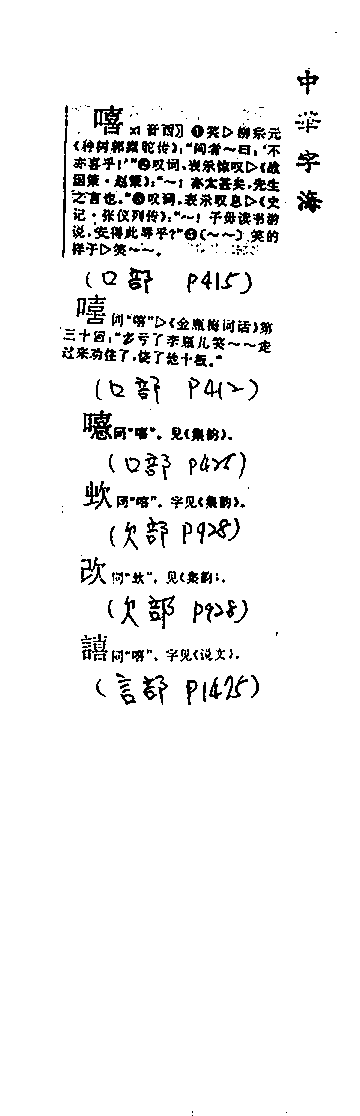 中华字海
嘻 xī 音西〕❶笑▷柳宗元
《种树郭橐驼传》：“问者～曰：‘不
亦善乎！’”❷叹词，表示惊叹▷《战
国策·赵策》：“～！亦太甚矣，先生
之言也。”❸叹词，表示叹息▷《史
记·张仪列传》：“～！子毋读书游
说，安得此辱乎？”❹〔～～〕笑的
样子▷笑～～。
(口部 P415)
同“嘻”▷《金瓶梅词话》第
三十回：“多亏了李瓶儿笑～～走
过来劝住了，饶了他十板。”
(口部 P412)
同“嘻”。见《集韵》。
(口部 P425)
同“嘻”。字见《集韵》。
(欠部 P928)
同“㰻”。见《集韵》。
(欠部 P928)
譆 同“嘻”。字见《说文》。
(言部 P1475)